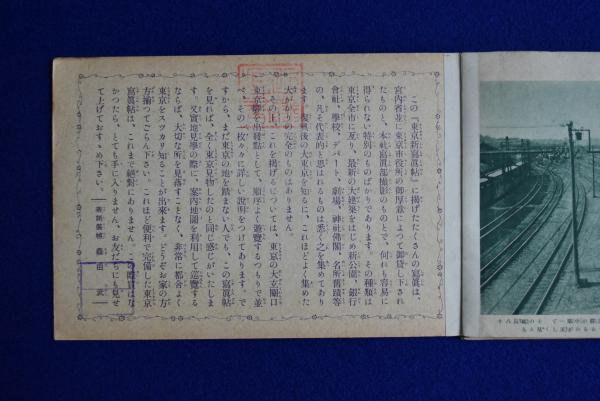 この『東京新寫眞帖』に揭げたたくさんの寫眞は、
宮內省並に東京市役所の御厚意よつて御貸し下され
たものと、本社寫眞部撮影のものとで、何れも容易に
得られない特別のものばかりであります。その種類は
東京全市に亙り、最新の大建築をはじめ新公園、銀行
會社、學校、デパート、劇場、神社佛閣、名所舊蹟等
の、凡そ代表的と思はれるものは悉く之を集めており
ます。復興後の大東京を知るに、これほどよく集めた
大がかりの完全のものはありません。
その上、これを揭げるについては、東京の大玄關口
東京驛を出發點として、順序よく遊覽するつもりで並
べ、その一枚々々に詳しい說明をつけてあります。で
すから、まだ東京の地を踏まない人でも、この寫眞帖
を見れば、全く東京見物したのと同じ感じがいたしま
す。又實地見學の際に、案內地圖を利用して巡覽する
ならば、大切な所を見落すことなく、非常に都合よく
東京をスツカリ知ることが出來ます。どうぞお家の方
方揃つてごらん下さい。これほど便利で完備した東京
寫眞帖は、これまで絕對にありません。この機會はな
かつたら、とても手に入りません。お友だちにも見せ
て上げておすゝめ下さい。